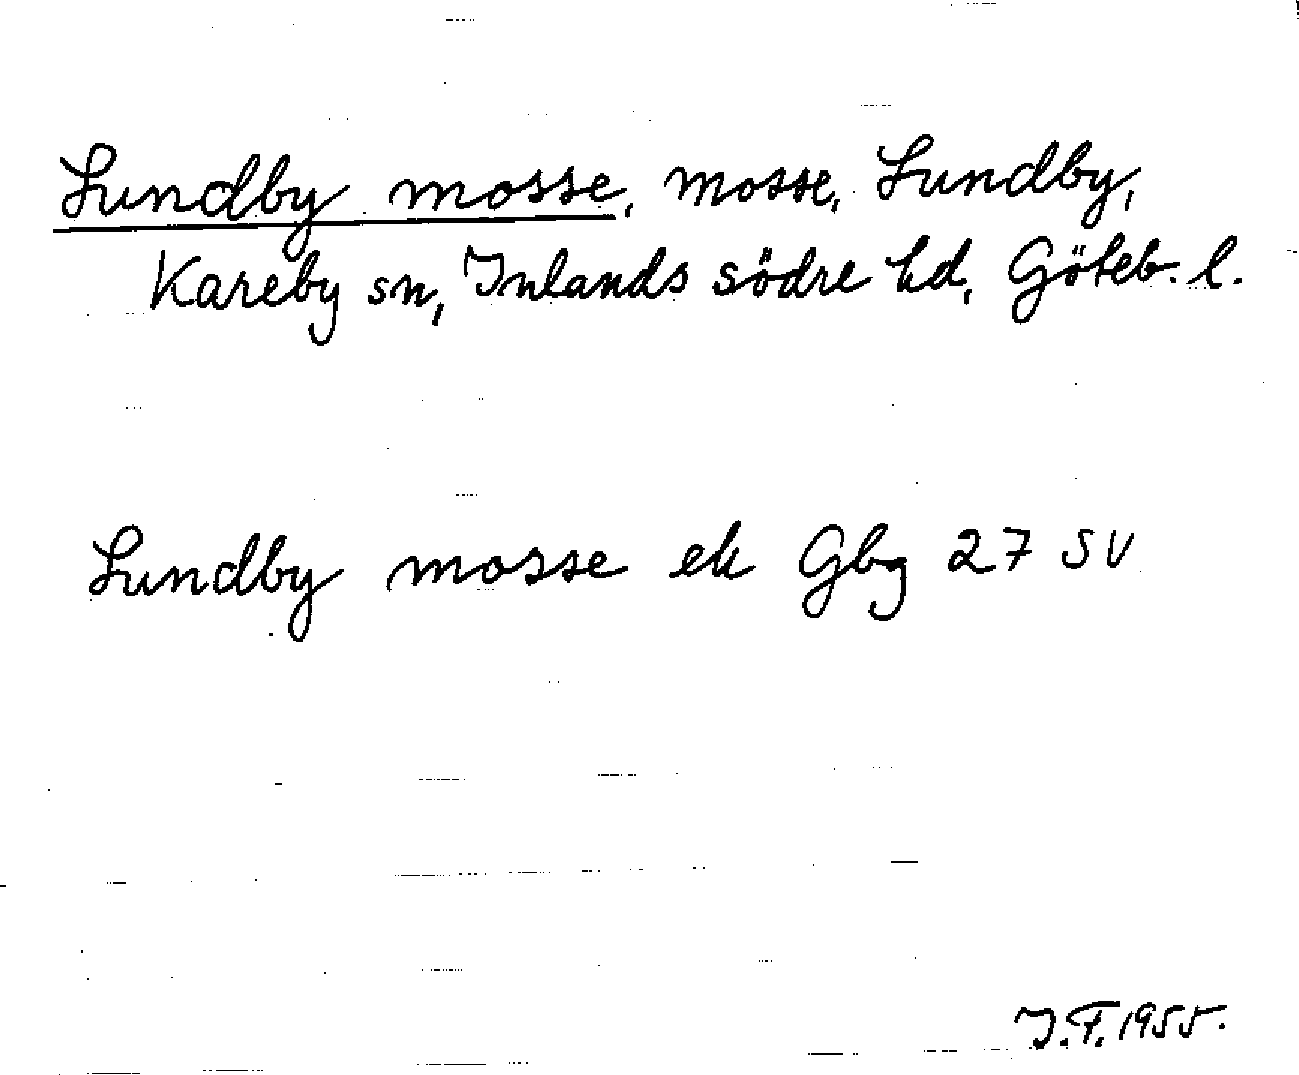 Lundby mosse, mosse, Lundby,
Kareby sn, Inlands södre hd, Göteb. l.
Lundby mosse ek Gbg 27 SV
I.F. 1955.